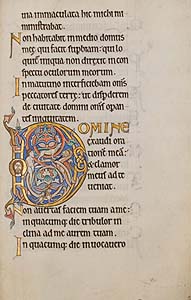 ma immaculata hic michi mi
nistrabat.
Non habitabit in medio domus
meę qui facit supbiam: qui lo
quit iniqua non direxit in con
spectu oculorum meorum.
In matutino interficiebam omīs
peccatores terrę: ut disperderem
de civitate domini omīs opan
tes iniquitatem.
DOMINE
exaudi ora
tionem meā:
& clamor
meus ad te
veniat.
Non avertas faciem tuam a me:
in quacūque die tribulor in
clina ad me aurem tuam.
In quacūque die invocavero